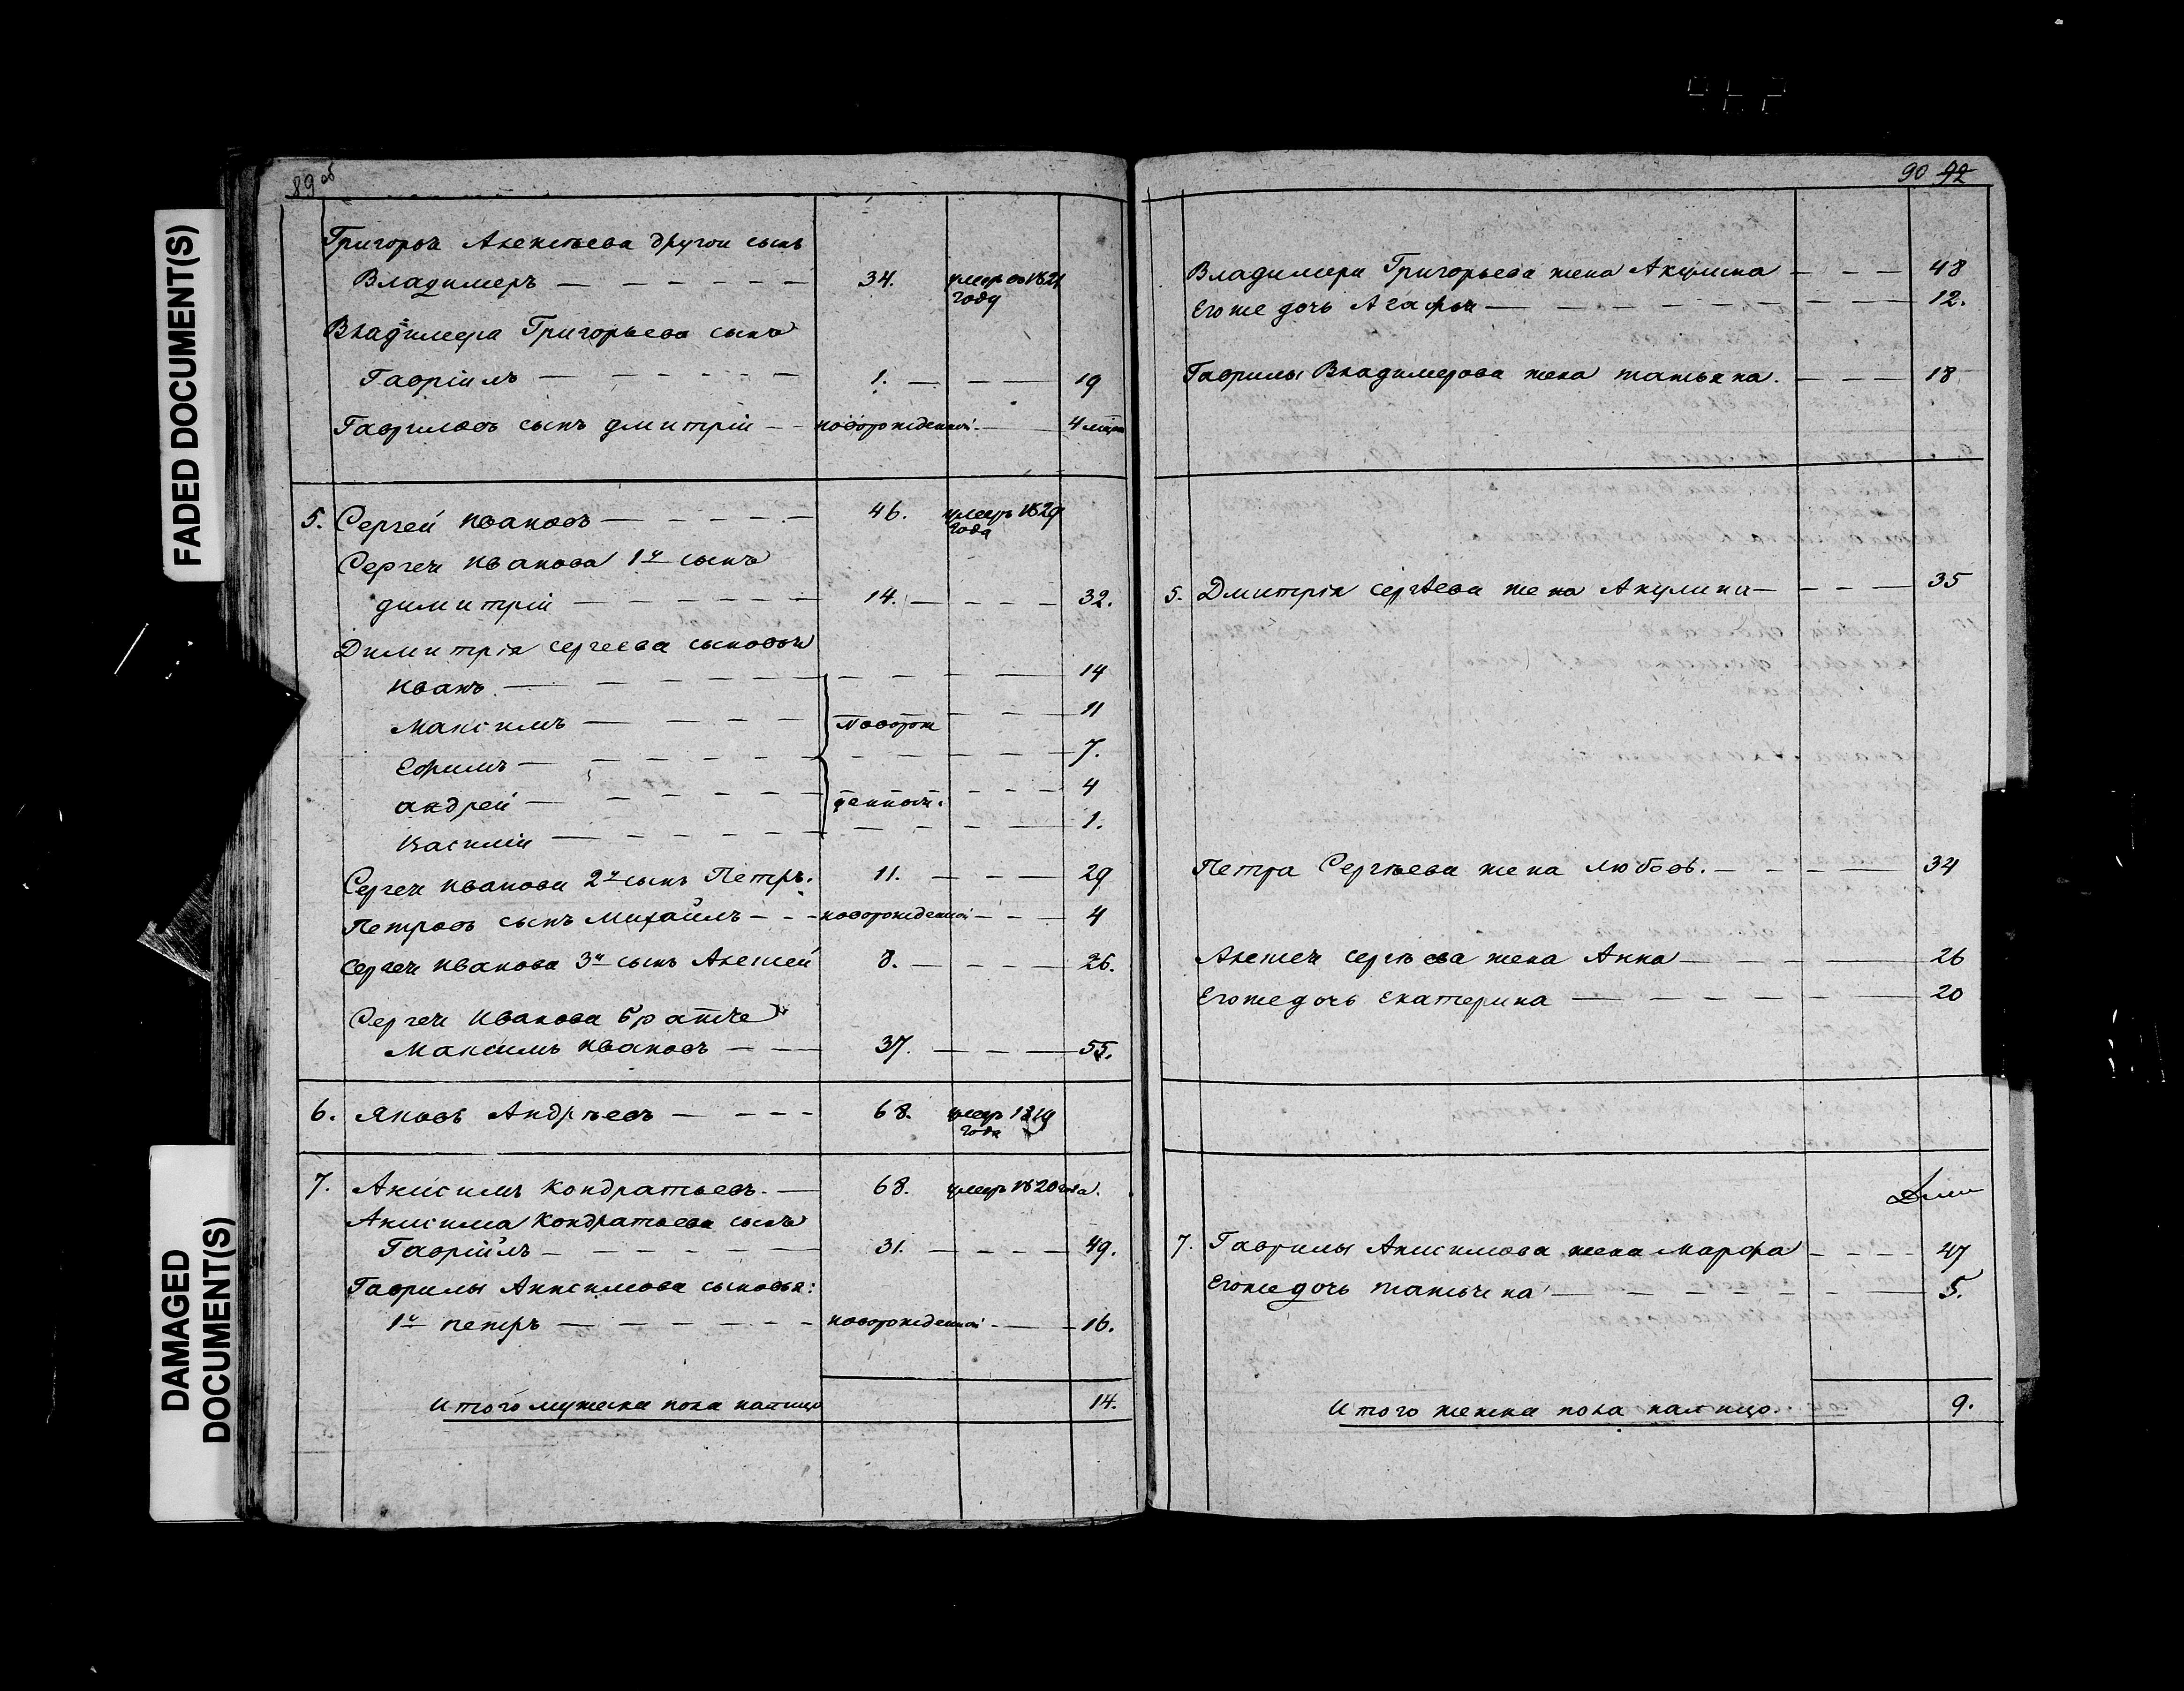 FADED DOCUMENT(S)
DAMAGED
DOCUMENT(S)
89 об
Григорья Алексѣева другой сынъ
Владимеръ — 34. умеръ въ 1821
году
Владимера Григорьева сынъ
Гавріилъ — 1. — 19
Гавриловъ сынъ дмитрій — новорожденной — 4 мѣся
5. Сергей Ивановъ — 46. умеръ 1829
года
Сергея Иванова 1й сынъ
димитрій — 14. — 32.
Димитрія сергеева сыновья
Иванъ — 14
Максимъ — новорож — 11
Ефимъ — 7.
андрей — денныя. — 4
Василій — 1.
Сергея Иванова 2й сынъ Петръ. 11. — 29
Петровъ сынъ Михайлъ — новорожденной — 4
Сергея Иванова 3й сынъ Алексей 8. — 26.
Сергея Иванова братъ
Максимъ Ивановъ — 37. — 55.
6. Яковъ Андрѣевъ — 68. умеръ 1819
года
7. Анисимъ Кондратьевъ. — 68. умеръ 1820 года.
Анисима Кондратьева сынъ
Гавріилъ — 31. — 49.
Гаврилы Анисимова сыновья:
1й петръ — новорожденной — 16.
Итого мужеска пола налицо 14.
90 92
Владимера Григорьева жена Акулина — 48
Егоже дочь Агафья — 12.
Гаврилы Владимерова жена татьяна. — 18
5. Дмитрія сергѣева жена Акулина — 35
Петра Сергѣева жена любовь. — 34
Алексея сергѣева жена Анна — 26
Егоже дочь екатерина — 20
7. Гаврилы Анисимова жена марфа — 47
Егоже дочь татьяна — 5.
Итого женска пола налицо. 9.